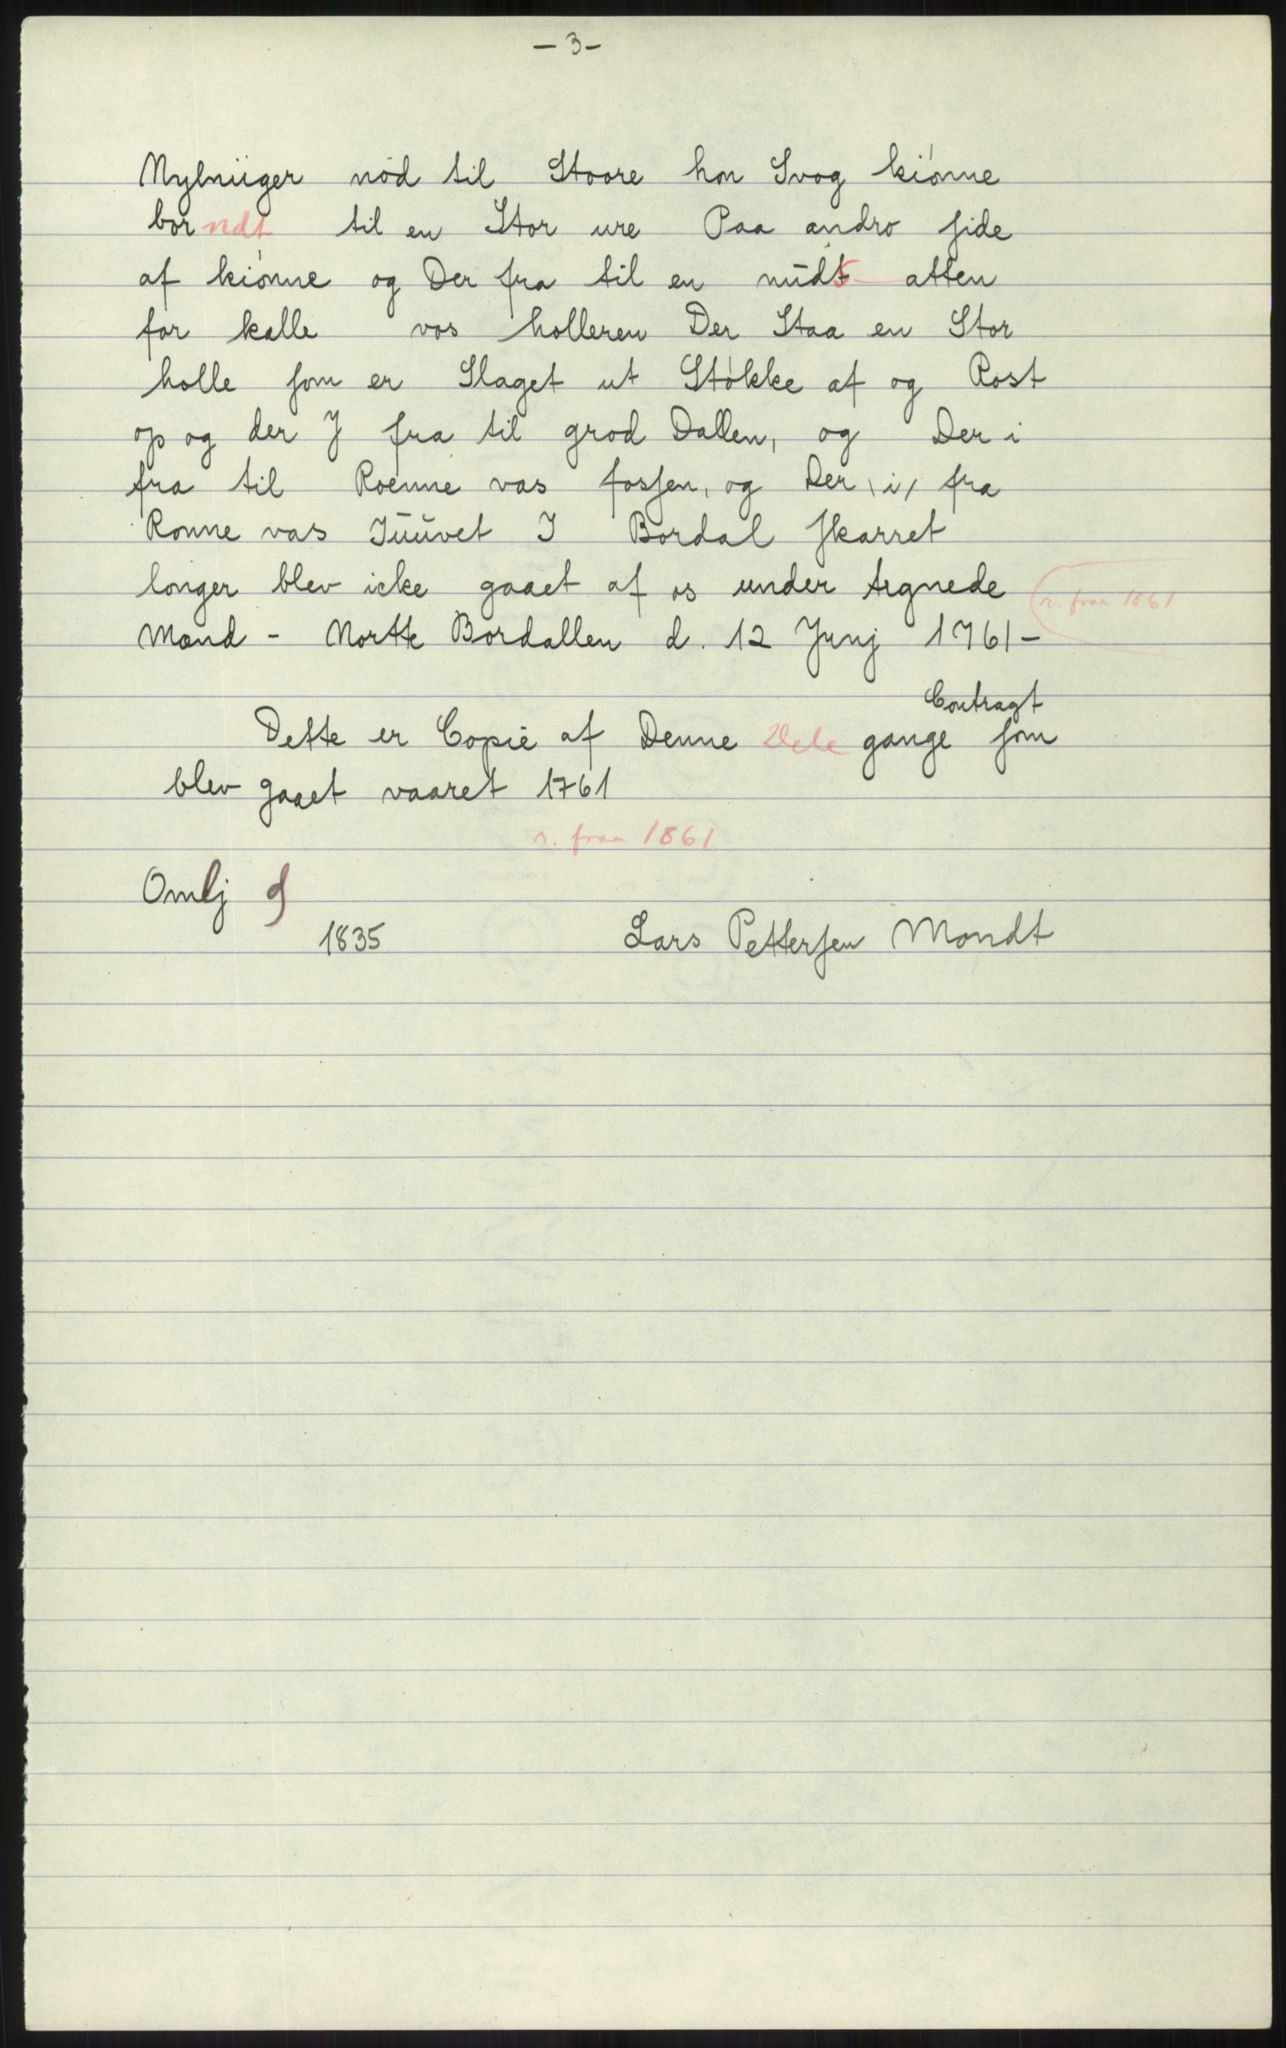 - 3 -
Nylniiger nød til Stoore hon Svog kiónne
borndt til en Stor ure Paa andro side
af kiónne og Der fra til en midts atten
for kalle vos holleren Der Staa en Stor
holle som er Slaget ut Støkke af og Rost
op og der J fra til grod Dallen, og Der i
fra til Roenne vas fossen, og Der, i, fra
Ronne vas Juuvet I Bordal Skarret
longer blev icke gaaet af os under tegnede
r. fraa 1861
Mond - Nortte Bordallen d. 12 Junj 1761 -
Contragt
Dette er Copie af Denne Dele gange som
blev gaaet vaaret 1761
r. fraa 1861
Omlj
1835 Lars Pettersen Mondt